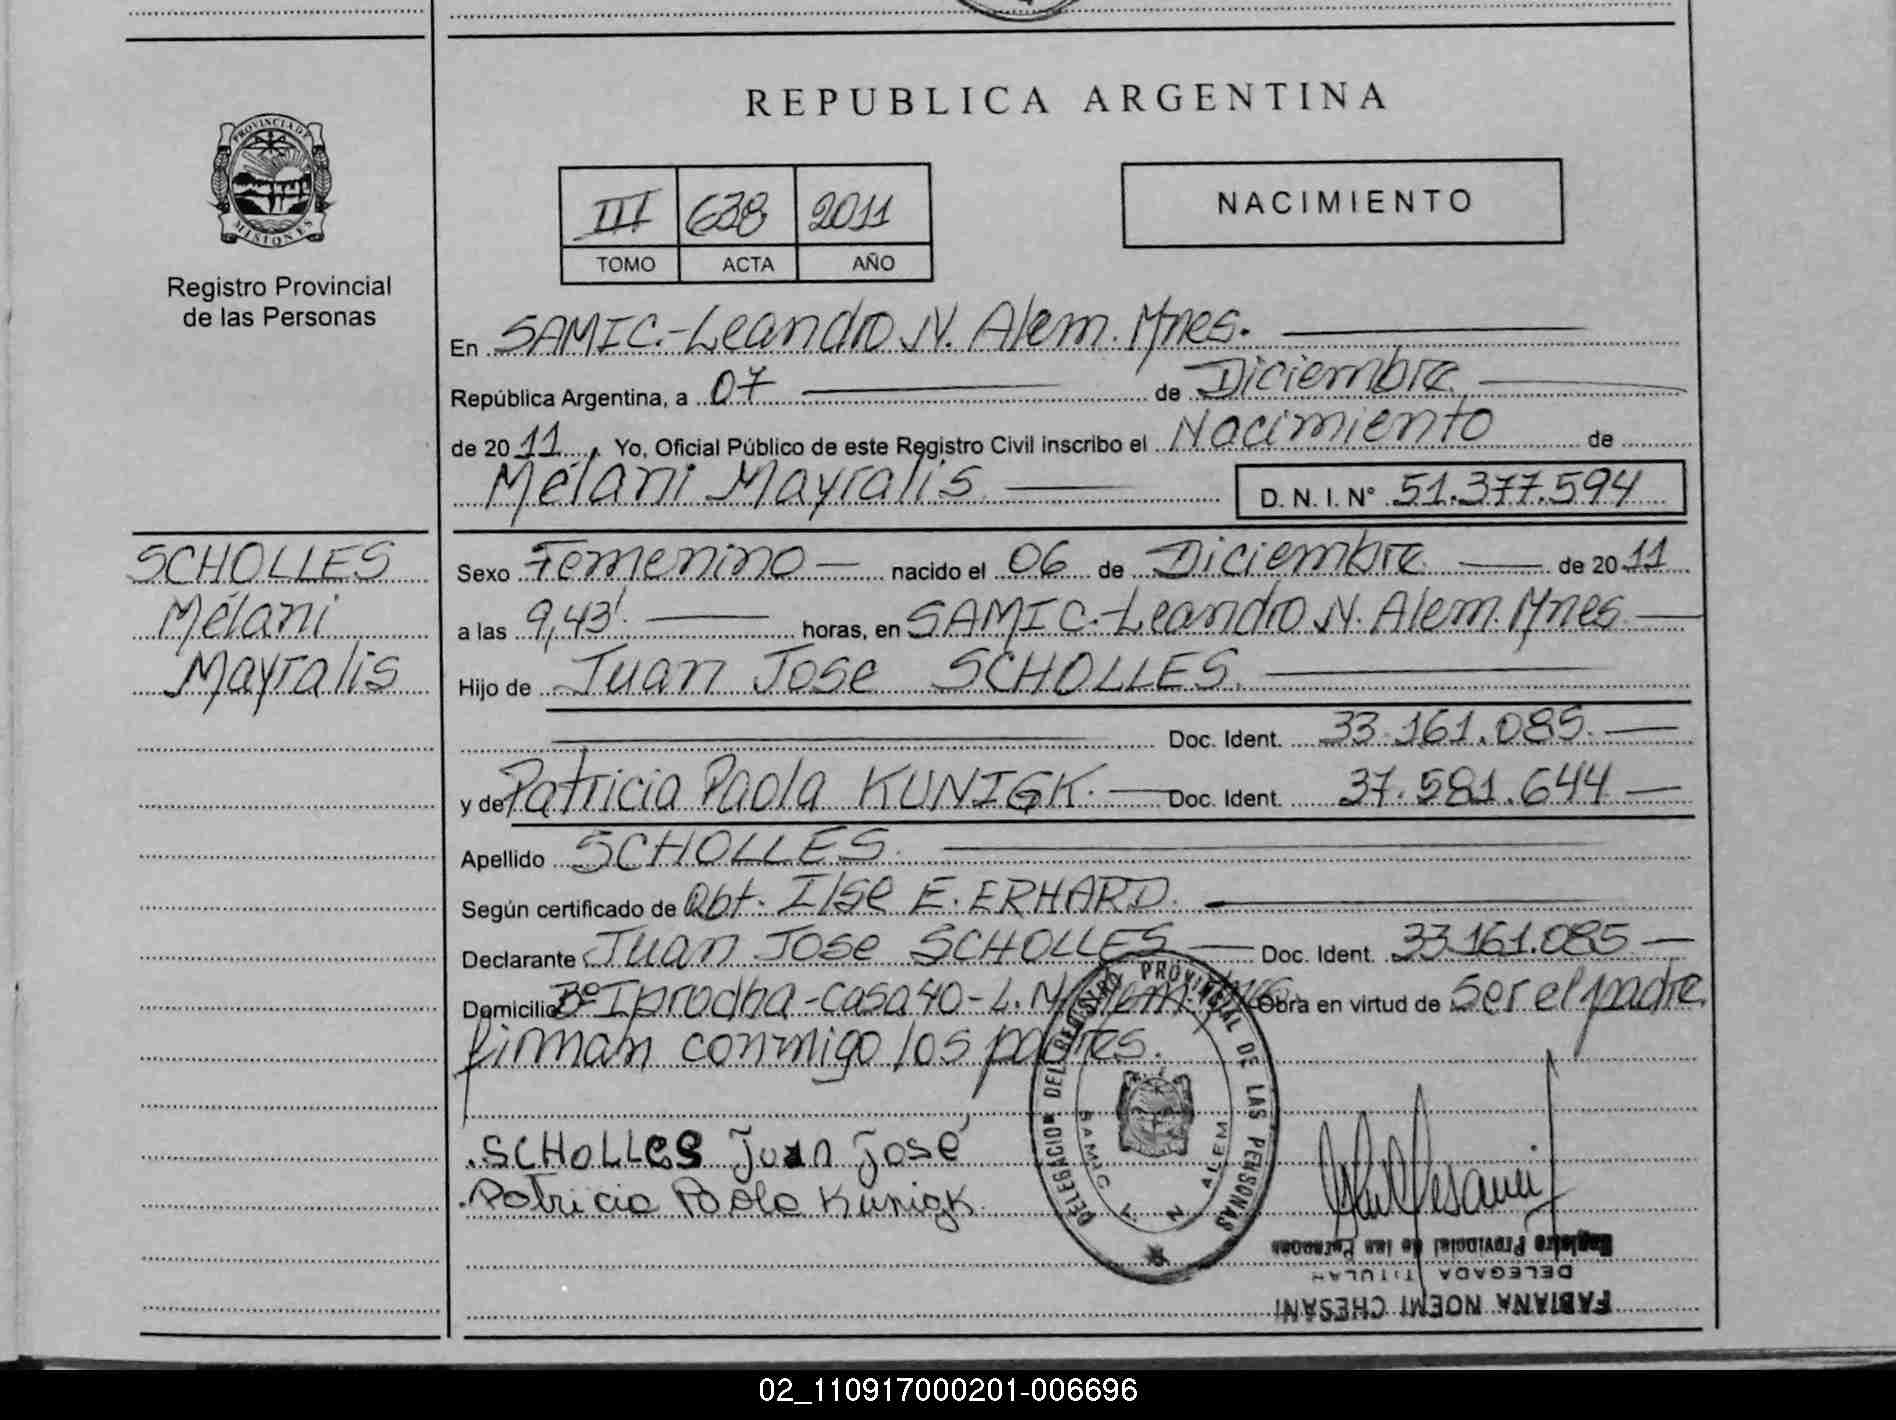 PROVINCIA DE
MISIONES
Registro Provincial
de las Personas
REPUBLICA ARGENTINA
III 638 2011
TOMO ACTA AÑO
NACIMIENTO
En SAMIC.-Leandro N. Alem. Mnes.
República Argentina, a 07 de Diciembre
de 2011. Yo, Oficial Público de este Registro Civil inscribo el Nacimiento de
Mélani Mayralis D. N. I. N° 51.377.594
SCHOLLES
Mélani
Mayralis
Sexo Femenino nacido el 06 de Diciembre de 2011
a las 9,43'. horas, en SAMIC.-Leandro N. Alem. Mnes
Hijo de Juan Jose SCHOLLES.
Doc. Ident. 33.161.085.
y de Patricia Paola KUNIGK. Doc. Ident. 37.581.644
Apellido SCHOLLES.
Según certificado de Obt. Ilse E. ERHARD.
Declarante Juan Jose SCHOLLES Doc. Ident. 33.161.085
Domicilio Bº Iprodha-Casa 40-L. N. Alem. Mnes. Obra en virtud de Ser el padre.
firman conmigo los padres.
SCHOLLES Juan José
Patricia Paola Kunigk
DELEGACION DEL REGISTRO PROVINCIAL DE LAS PERSONAS
SAMIC L N ALEM
Registro Provincial de las Personas
DELEGADA TITULAR
FABIANA NOEMI CHESANI
02_110917000201-006696